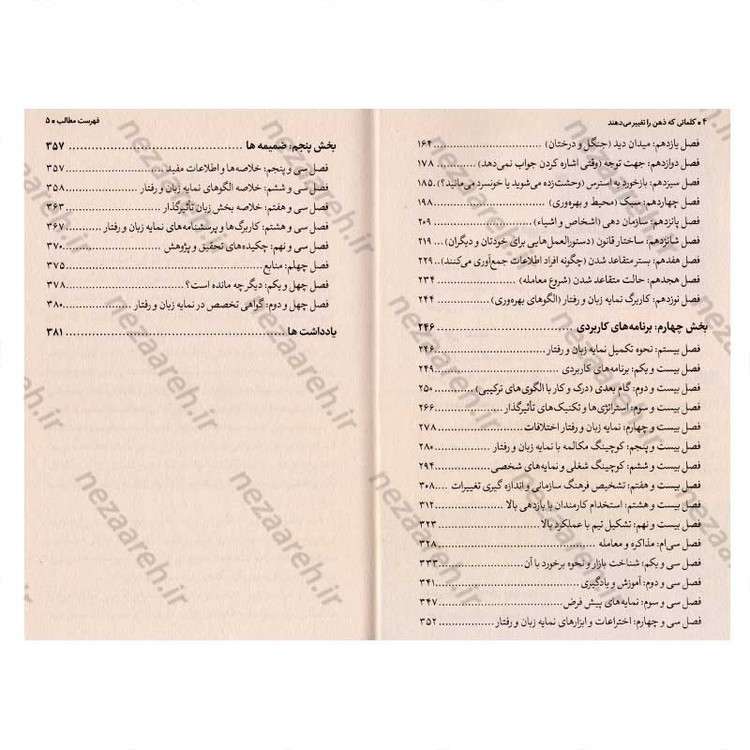 ۴ • کلماتی که ذهن را تغییر می‌دهند
فصل یازدهم: میدان دید (جنگل و درختان) ۱۶۴
فصل دوازدهم: جهت توجه (وقتی اشاره کردن جواب نمی‌دهد) ۱۷۸
فصل سیزدهم: بازخورد به استرس (وحشت‌زده می‌شوید یا خونسرد می‌مانید؟) ۱۸۵
فصل چهاردهم: سبک (محیط و بهره‌وری) ۱۹۸
فصل پانزدهم: سازمان دهی (اشخاص و اشیاء) ۲۰۹
فصل شانزدهم: ساختار قانون (دستورالعمل‌هایی برای خودتان و دیگران) ۲۱۹
فصل هفدهم: بستر متقاعد شدن (چگونه افراد اطلاعات جمع‌آوری می‌کنند) ۲۲۹
فصل هجدهم: حالت متقاعد شدن (شروع معامله) ۲۳۴
فصل نوزدهم: کاربرگ نمایه زبان و رفتار (الگوهای بهره‌وری) ۲۴۴
بخش چهارم: برنامه‌های کاربردی ۲۴۶
فصل بیستم: نحوه تکمیل نمایه زبان و رفتار ۲۴۶
فصل بیست و یکم: برنامه‌های کاربردی ۲۴۹
فصل بیست و دوم: گام بعدی (درک و کار با الگوی‌های ترکیبی) ۲۵۰
فصل بیست و سوم: استراتژی‌ها و تکنیک‌های تأثیرگذار ۲۶۶
فصل بیست و چهارم: نمایه زبان و رفتار اختلافات ۲۷۸
فصل بیست و پنجم: کوچینگ مکالمه با نمایه زبان و رفتار ۲۸۰
فصل بیست و ششم: کوچینگ شغلی و نمایه‌های شخصی ۲۹۴
فصل بیست و هفتم: تشخیص فرهنگ سازمانی و اندازه گیری تغییرات ۳۰۸
فصل بیست و هشتم: استخدام کارمندان با بازدهی بالا ۳۱۲
فصل بیست و نهم: تشکیل تیم با عملکرد بالا ۳۲۳
فصل سی‌ام: مذاکره و معامله ۳۲۸
فصل سی و یکم: شناخت بازار و نحوه برخورد با آن ۳۳۳
فصل سی و دوم: آموزش و یادگیری ۳۴۱
فصل سی و سوم: نمایه‌های پیش فرض ۳۴۷
فصل سی و چهارم: اختراعات و ابزارهای نمایه زبان و رفتار ۳۵۲
فهرست مطالب • ۵
بخش پنجم: ضمیمه ها ۳۵۷
فصل سی و پنجم: خلاصه‌ها و اطلاعات مفید ۳۵۷
فصل سی و ششم: خلاصه الگوهای نمایه زبان و رفتار ۳۵۸
فصل سی و هفتم: خلاصه بخش زبان تأثیرگذار ۳۶۳
فصل سی و هشتم: کاربرگ‌ها و پرسشنامه‌های نمایه زبان و رفتار ۳۶۷
فصل سی و نهم: چکیده‌های تحقیق و پژوهش ۳۷۰
فصل چهلم: منابع ۳۷۵
فصل چهل و یکم: دیگر چه مانده است؟ ۳۷۸
فصل چهل و دوم: گواهی تخصص در نمایه زبان و رفتار ۳۸۰
یادداشت ها ۳۸۱
nezaareh.ir